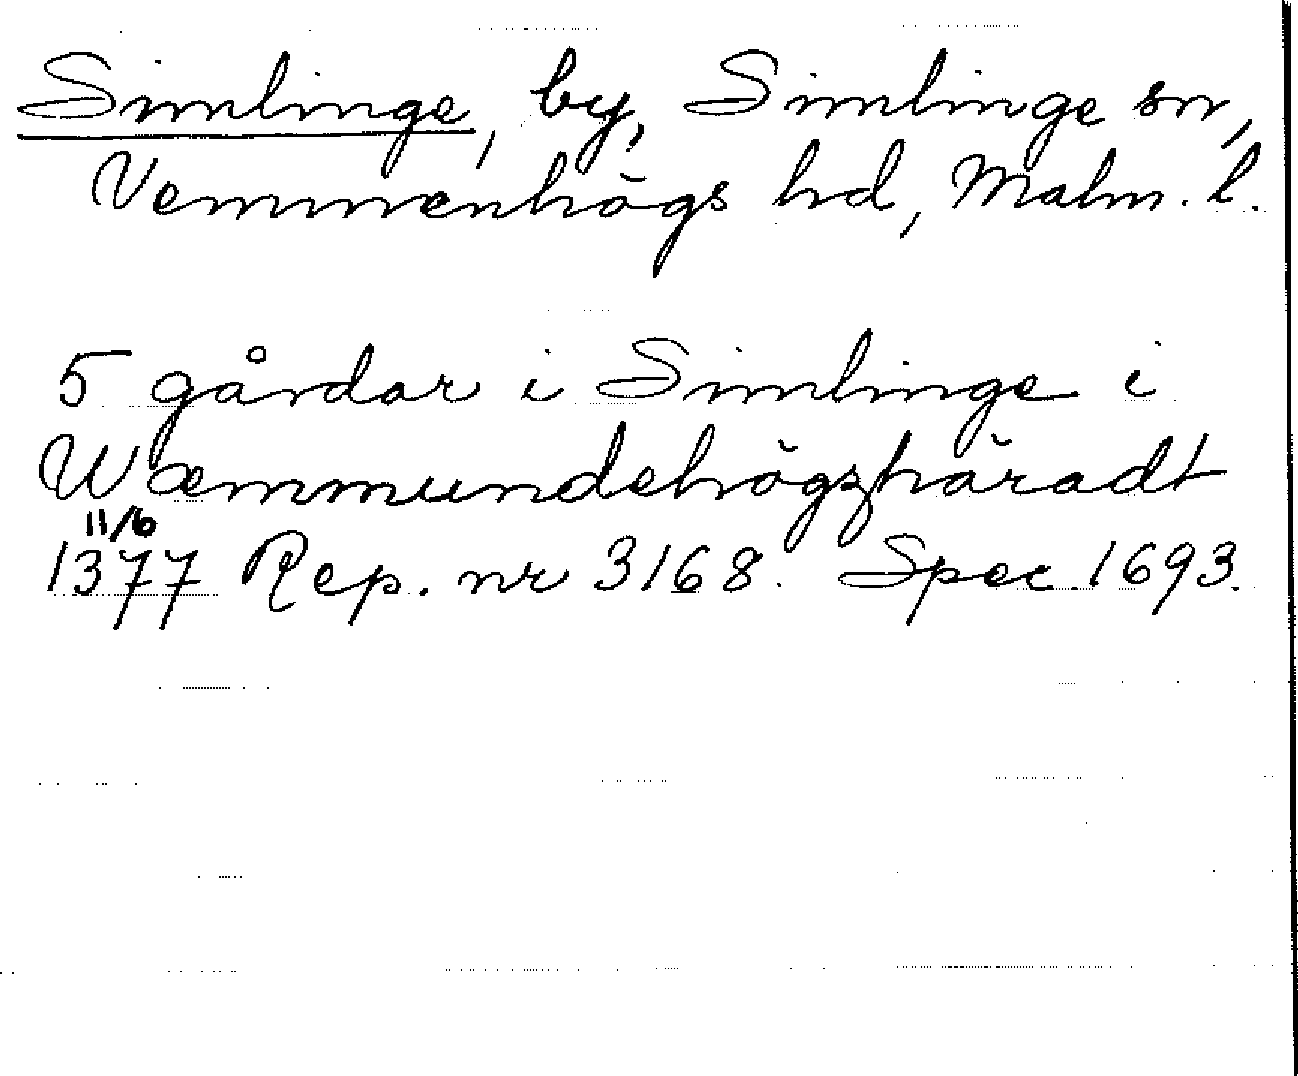 Simlinge, by, Simlinge sn,
Vemmenhögs hd, Malm. l.
5 gårdar i Simlinge i
Wæmmundehögzhäradt
11/6
1377 Rep. nr 3168. Spec. 1693.